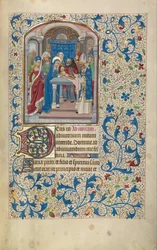 Deus in
adiutorium meum
intende. Domine ad
adiuvandum me fes
tina.
Gloria patri et filio et spiritui
Sicut erat in principio et nunc et